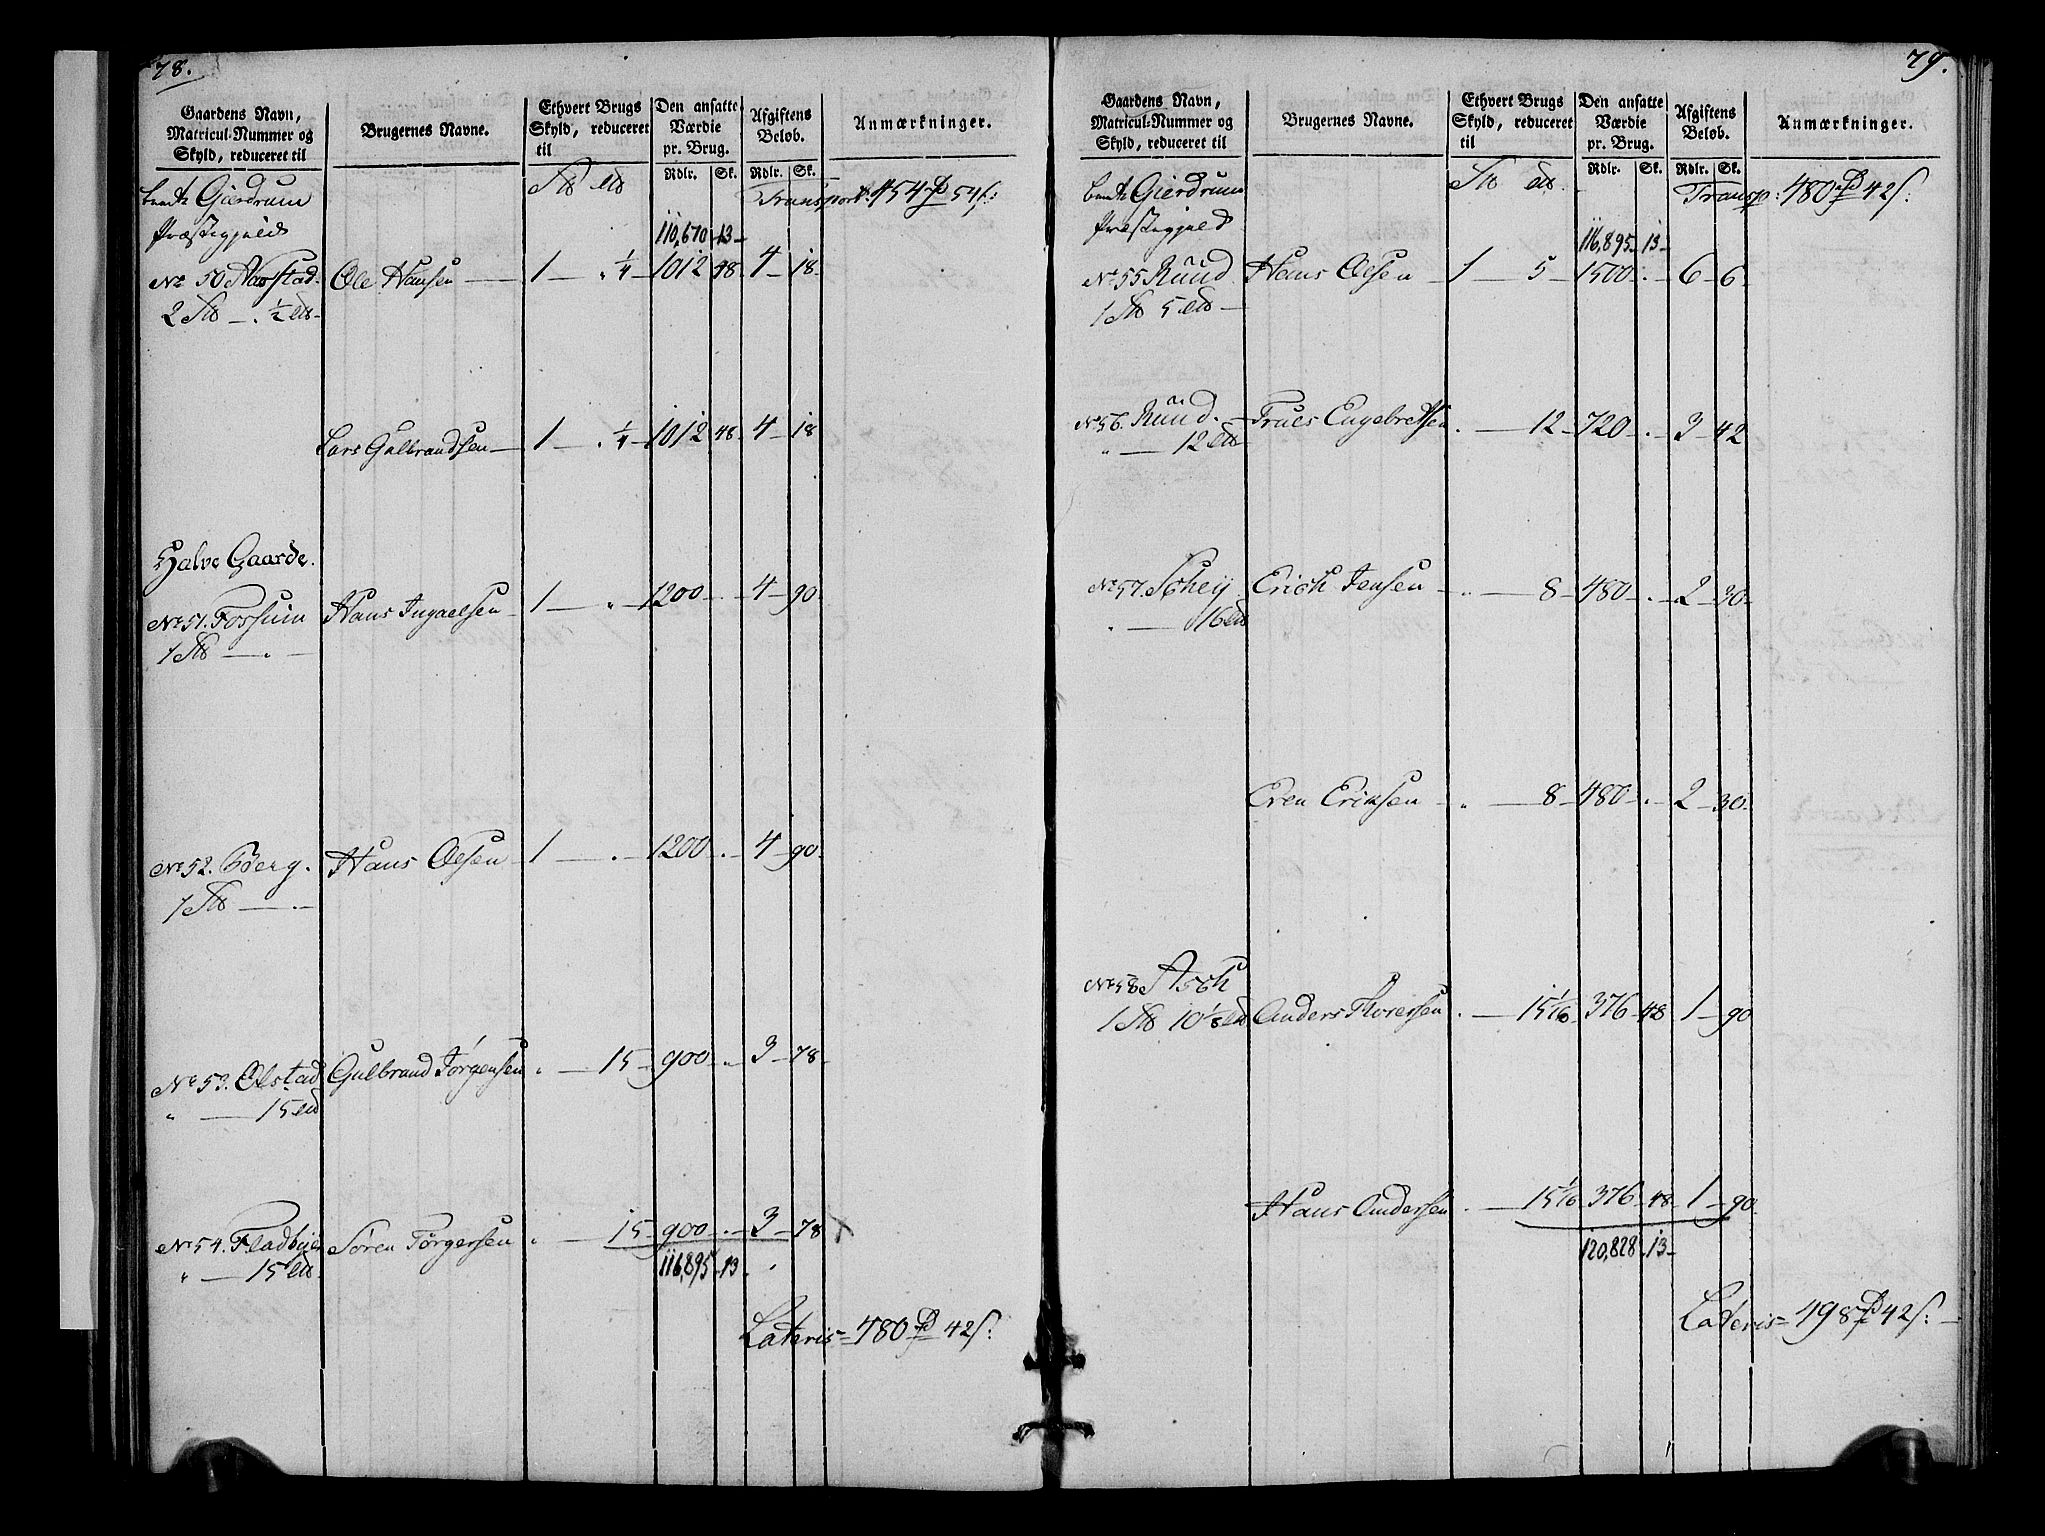 78.
Gaardens Navn, Matricul-Nummer og Skyld, reduceret til | Brugernes Navne. | Ethvert Brugs Skyld, reduceret til | Den ansatte Værdie pr. Brug. | Afgiftens Beløb. | Anmærkninger.
Rdlr. Sk. Rdlr. Sk.
Gierdrum Transport 454 54 s:
Præstegjæld 110,670 - 13 -
No 50 Aarstad Ole Hansen 1 - " 1/4 - 1012 48 - 4 - 18 -
2 - . 1/2
Lars Gulbrandsen 1 - " 1/4 - 1012 48 - 4 - 18
Halve Gaarde.
No 51. Fossum Hans Ingaelsen 1 - " - 1200 - . - 4 - 90 -
1 - " -
No 52. Berg. Hans Olsen 1 - . - 1200 . - 4 - 90 -
1 - . -
No 53. Olstad Gulbrand Jørgensen " - 15 - 900 - " - 3 - 78 -
" - 15
No 54. Fladbye Søren Torgersen " - 15 - 900 . - 3 - 78
" - 15 116,895 - 13 -
Lateris = 480 42 s:
79.
Gaardens Navn, Matricul-Nummer og Skyld, reduceret til | Brugernes Navne. | Ethvert Brugs Skyld, reduceret til | Den ansatte Værdie pr. Brug. | Afgiftens Beløb. | Anmærkninger.
Rdlr. Sk. Rdlr. Sk.
Gierdrum Transp: 480 42 s:
Præstegjæld 116,895 - 13 -
No 55 Ruud Hans Olsen 1 - 5 - 1500 - . - 6 - 6 -
1 5
No 56. Ruud. Truls Engebretsen . - 12 - 720 - . - 3 - 42
" - 12
No 57. Scheij Erich Jensen - " - 8 - 480 - . - 2 - 30 -
" - 16
Even Eriksen - " - 8 - 480 - . - 2 - 30 -
No 58 Asch
1 10 1/8 Anders Thoresen . - 15 1/16 376 - 48 - 1 - 90
Hans Andersen . - 15 1/16 376 - 48 - 1 - 90 -
120,828 . 13 -
Lateris = 498 42 s: